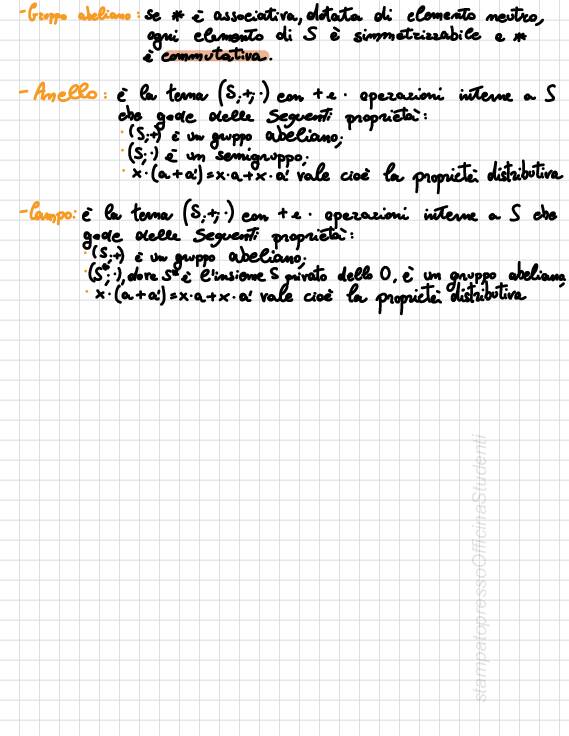 - Gruppo abeliano: se * è associativa, dotata di elemento neutro,
ogni elemento di S è simmetrizzabile e *
è commutativa.
- Anello: è la terna (S,+,·) con + e · operazioni interne a S
che gode delle seguenti proprietà:
· (S,+) è un gruppo abeliano;
· (S,·) è un semigruppo;
· x·(a+a')=x·a+x·a' vale cioè la proprietà distributiva
- Campo: è la terna (S,+,·) con + e · operazioni interne a S che
gode delle seguenti proprietà:
· (S,+) è un gruppo abeliano;
· (S*,·), dove S* è l'insieme S privato dello 0, è un gruppo abeliano;
· x·(a+a')=x·a+x·a' vale cioè la proprietà distributiva
stampatopressoOfficinaStudenti